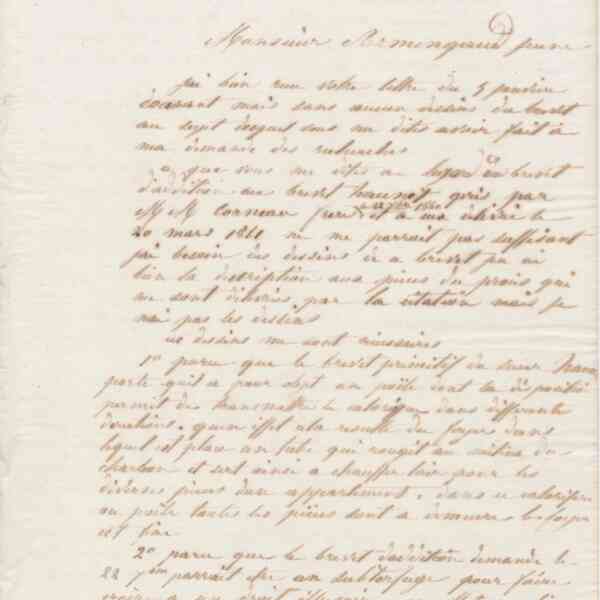 Monsieur Armengaud jeune
j'ai bien recu votre lettre du 5 janvier
courant mais sans aucun dessins du brevet
au sujet duquel vous me dites avoir fait à
ma demande des recherches
que vous me dites au sujet du brevet
d'addition au brevet haunet gris par
M M Corneau frere et à ma
20 mars 1841 ne me parrait pas suffisant
j'ai besoin des dessins de ce brevet j'ai
bien la description aux pieces du procès qui
me sont par la citation mais je
n'ai pas les dessins
ces dessins me sont nécessaires
1º parce que le brevet primitif du sieur
porte qu'il a pour un poële dont la disposition
permet de transmettre le calorique dans differente
directions. qu'en effet a la du foyer dans
lequel est place un tube qui rougit au milieu du
charbon et sert ainsi a chauffer l'air pour les
diverses pieces d'un appartement. dans ce calorifere
ou poële toutes les pieces sont a demeure le foyer
est fixe
2º parce que le brevet d'addition demande le
22 parrait être un subterfuge pour faire
croire a un droit